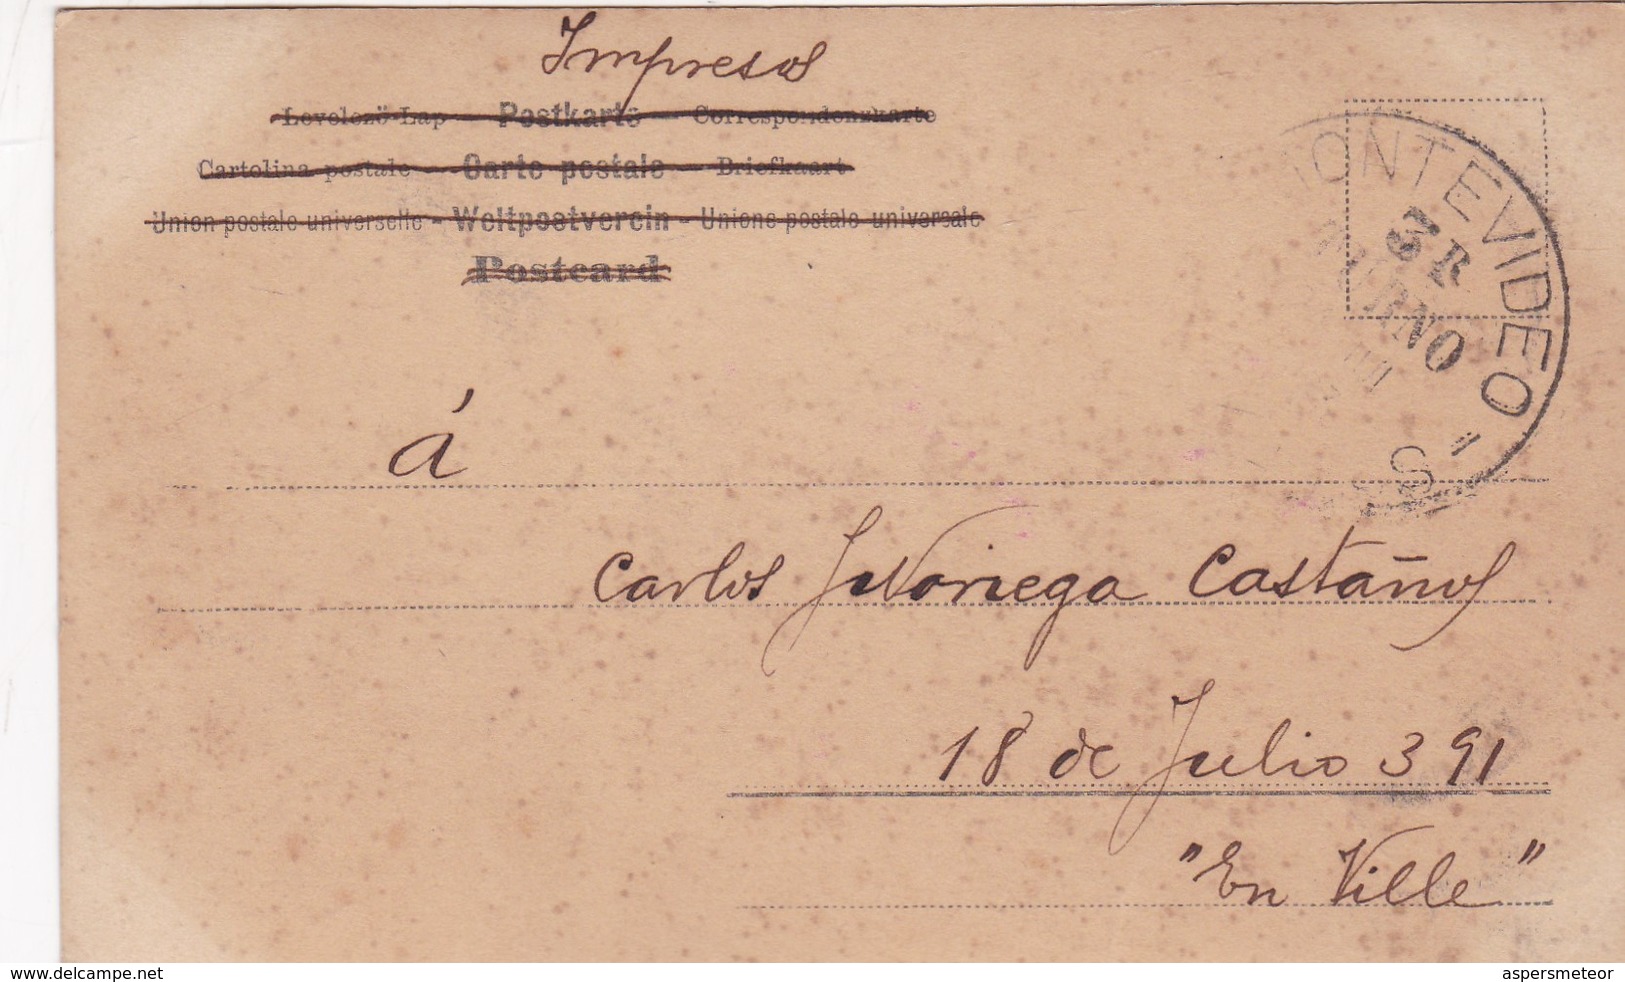 Impresos
Levelezö-Lap — Postkarte — Correspondenzkarte
Cartolina postale — Carte postale — Briefkaart
Union postale universelle - Weltpostverein - Unione postale universale
Postcard
MONTEVIDEO
3 R
TURNO
á
Carlos J Noriega Castaños
18 de Julio 391
"En Ville"
www.delcampe.net
aspersmeteor